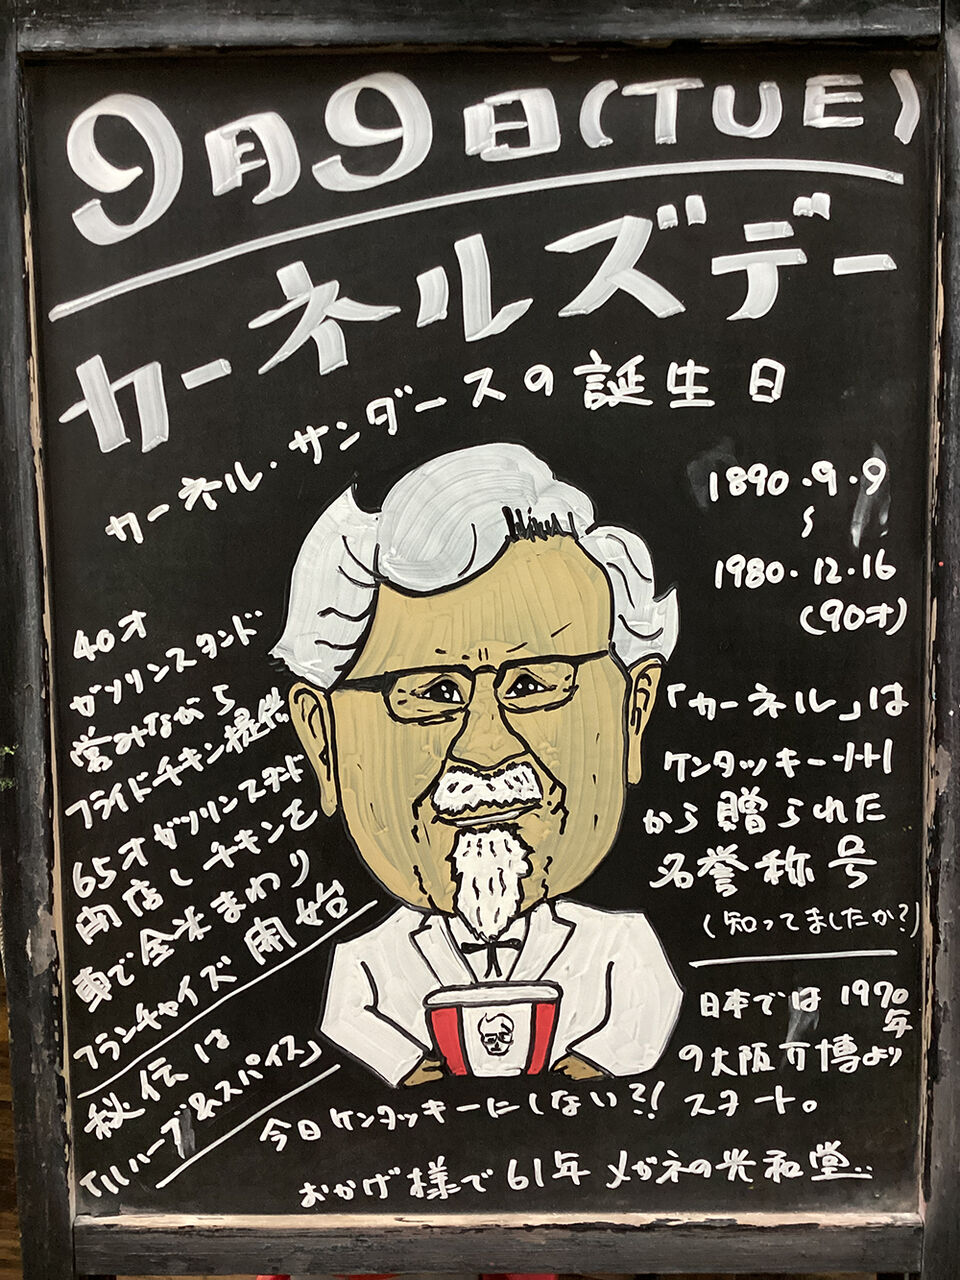 9月9日(TUE)
カーネルズデー
カーネル・サンダースの誕生日
1890.9.9
〜
1980.12.16
(90才)
40才
ガソリンスタンド
営みながら
フライドチキン提供
65才ガソリンスタンド
閉店しチキンを
車で全米まわり
フランチャイズ開始
秘伝は
「11ハーブ&スパイス」
「カーネル」は
ケンタッキー州
から贈られた
名誉称号
(知ってましたか?)
日本では1970年
の大阪万博より
スタート。
今日ケンタッキーにしない?!
おかげ様で61年メガネの光和堂..